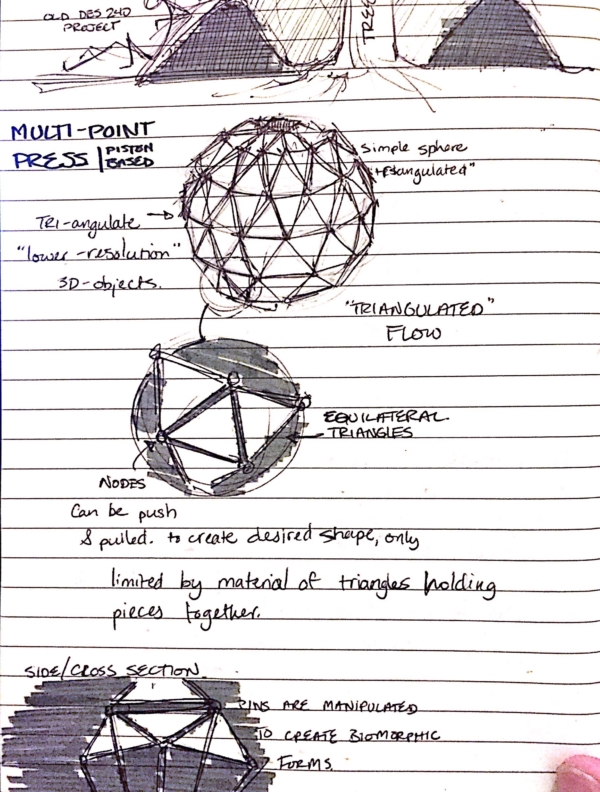 OLD DES 240
PROJECT
TREE
MULTI-POINT
PRESS | PISTON
BASED
simple sphere
"triangulated"
TRI-angulate
"lower-resolution"
3D-objects.
"TRIANGULATED"
FLOW
EQUILATERAL
TRIANGLES
NODES
Can be push
& pulled. to create desired shape, only
limited by material of triangles holding
pieces together.
SIDE/CROSS SECTION.
PINS ARE MANIPULATED
TO CREATE BIOMORPHIC
FORMS.